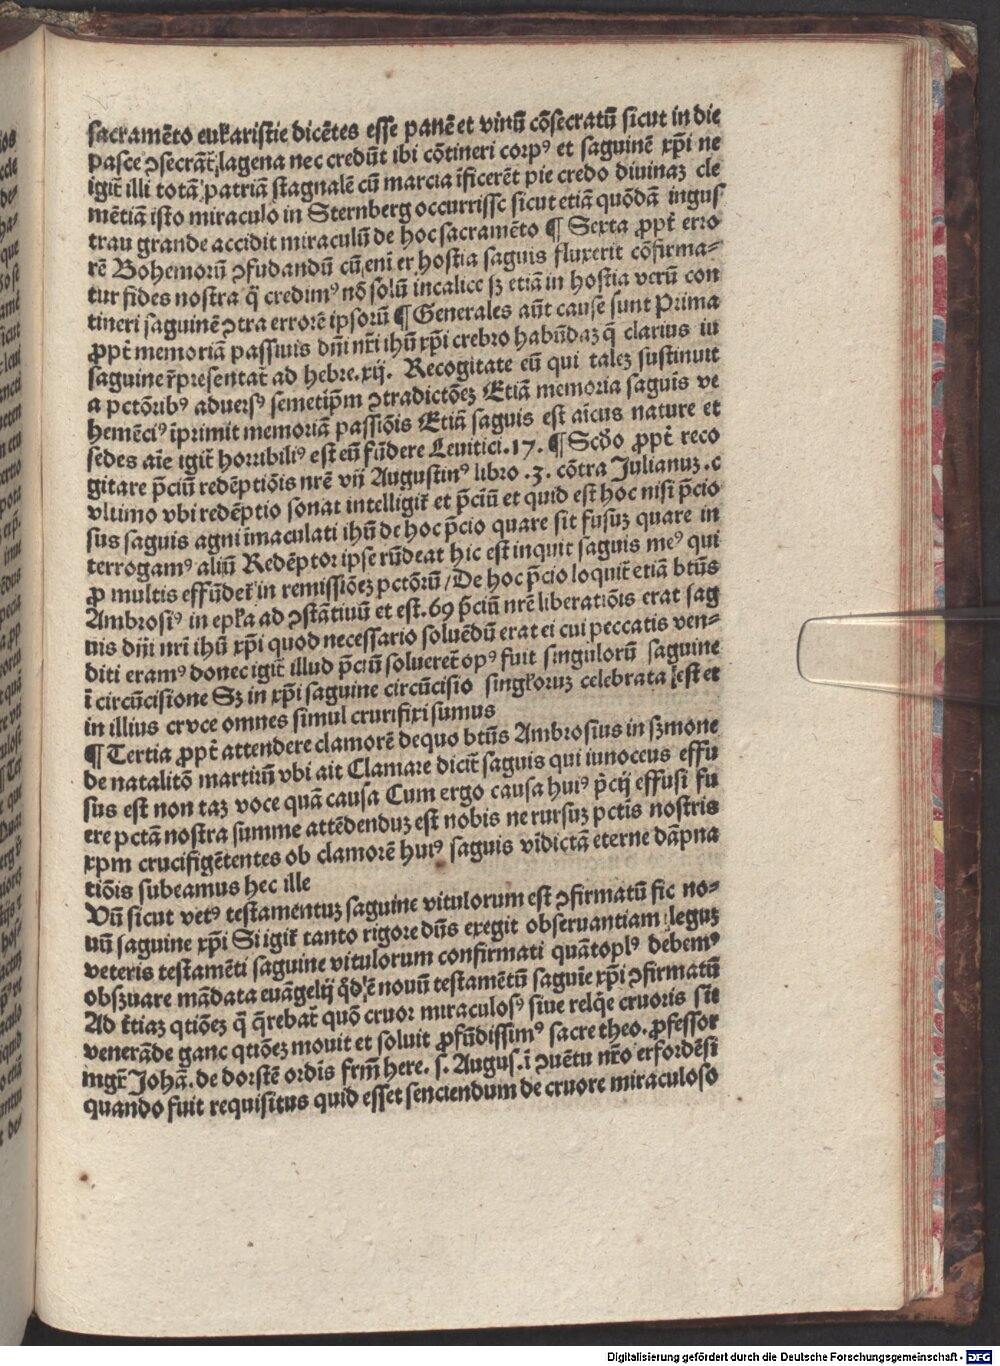 sacramēto eukaristie dicētes esse panē et vinū cōsecratū sicut in die
pasce ꝯsecrāt̄ lagena nec credūt ibi cōtineri corpꝰ et saguinē xp̄i ne
igit̄ illi totā patriā stagnalē cū marcia īficerēt pie credo diuinaꝫ cle
mētiā isto miraculo in Sternberg occurrisse sicut etiā quōdā ingus
trau grande accidit miraculū de hoc sacramēto ¶ Sexta ꝓpt̄ erro
rē Bohemorū ꝯfudandū cū eni er hostia saguis fluxerit cōfirma-
tur fides nostra q̄ credimꝰ nō solū incalice sꝫ etiā in hostia verū con
tineri saguinē ꝯtra errorē ipsorū ¶ Generales aūt cause sunt Prima
ꝓpt̄ memoriā passiuis dn̄i nr̄i ihū xp̄i crebro habūdaꝫ q̄ clarius in
saguine r̄presentat̄ ad hebre. xij. Recogitate eū qui taleꝫ sustinuit
a pctōribꝰ aduersꝰ semetip̄m ꝯtradictōeꝫ Etiā memoria saguis ve
hemēciꝰ īprimit memoriā passiōis Etiā saguis est aīcus nature et
sedes aīe igit̄ horribiliꝰ est eū fūdere Leuitici. 17. ¶ Scd̄o ꝓpt̄ reco
gitare p̄ciū redēptiōis nrē vij Augustinꝰ libro .3. cōtra Julianuꝫ .c
vltimo vbi redēptio sonat intelligit̄ et p̄ciū et quid est hoc nisi p̄cio
sus saguis agni īmaculati ihū de hoc p̄cio quare sit fusuꝫ quare in
terrogamꝰ aliū Redēptor ipse rūdeat hic est inquit saguis meꝰ qui
ꝓ multis effūdet̄ in remissiōeꝫ pctōrū / De hoc p̄cio loquit̄ etiā btūs
Ambrosiꝰ in epl̄a ad ꝯstātiuū et est. 69 p̄ciū nrē liberatiōis erat sag
nis dn̄i nr̄i ihū xp̄i quod necessario soluēdū erat ei cui peccatis ven-
diti eramꝰ donec igit̄ illud p̄ciū solueret̄ opꝰ fuit singulorū saguine
ī circūcisione Sꝫ in xp̄i saguine circūcisio singloruꝫ celebrata est et
in illius crvce omnes simul crucifixi sumus
¶ Tertia ꝓpt̄ attendere clamorē dequo btūs Ambrosius in sꝫmone
de natalitō martirū vbi ait Clamare dicit̄ saguis qui innoceus effu
sus est non taꝫ voce quā causa Cum ergo causa huiꝰ p̄cij effusi fu
ere pctā nostra summe attēdenduꝫ est nobis ne rursuꝫ pctis nostris
xpm crucifigētentes ob clamorē huiꝰ saguis vīdictā eterne dāpna
tiōis subeamus hec ille
Vn̄ sicut vetꝰ testamentuꝫ saguine vitulorum est ꝯfirmatū sic no-
uū saguine xp̄i Si igit̄ tanto rigore dūs exegit obseruantiam leguꝫ
veteris testamēti saguine vitulorum confirmati quātoplꝰ debemꝰ
obsꝫuare mādata euāgelij qd̓ ē nouū testamētū saguīe xp̄i ꝯfirmatū
Ad t̄tiaꝫ qtiōeꝫ q̄ q̄rebat̄ quō cruor miraculosꝰ siue relqe cruoris sit
venerāde ganc qtiōeꝫ mouit et soluit ꝓfūdissimꝰ sacre theo. ꝓfessor
mgr̄ Johā. de dorstē ordis frm̄ here. s. Augus. ī ꝯuētu nr̄o erfordēsi
quando fuit requisitus quid esset senciendum de cruore miraculoso
Digitalisierung gefördert durch die Deutsche Forschungsgemeinschaft - DFG